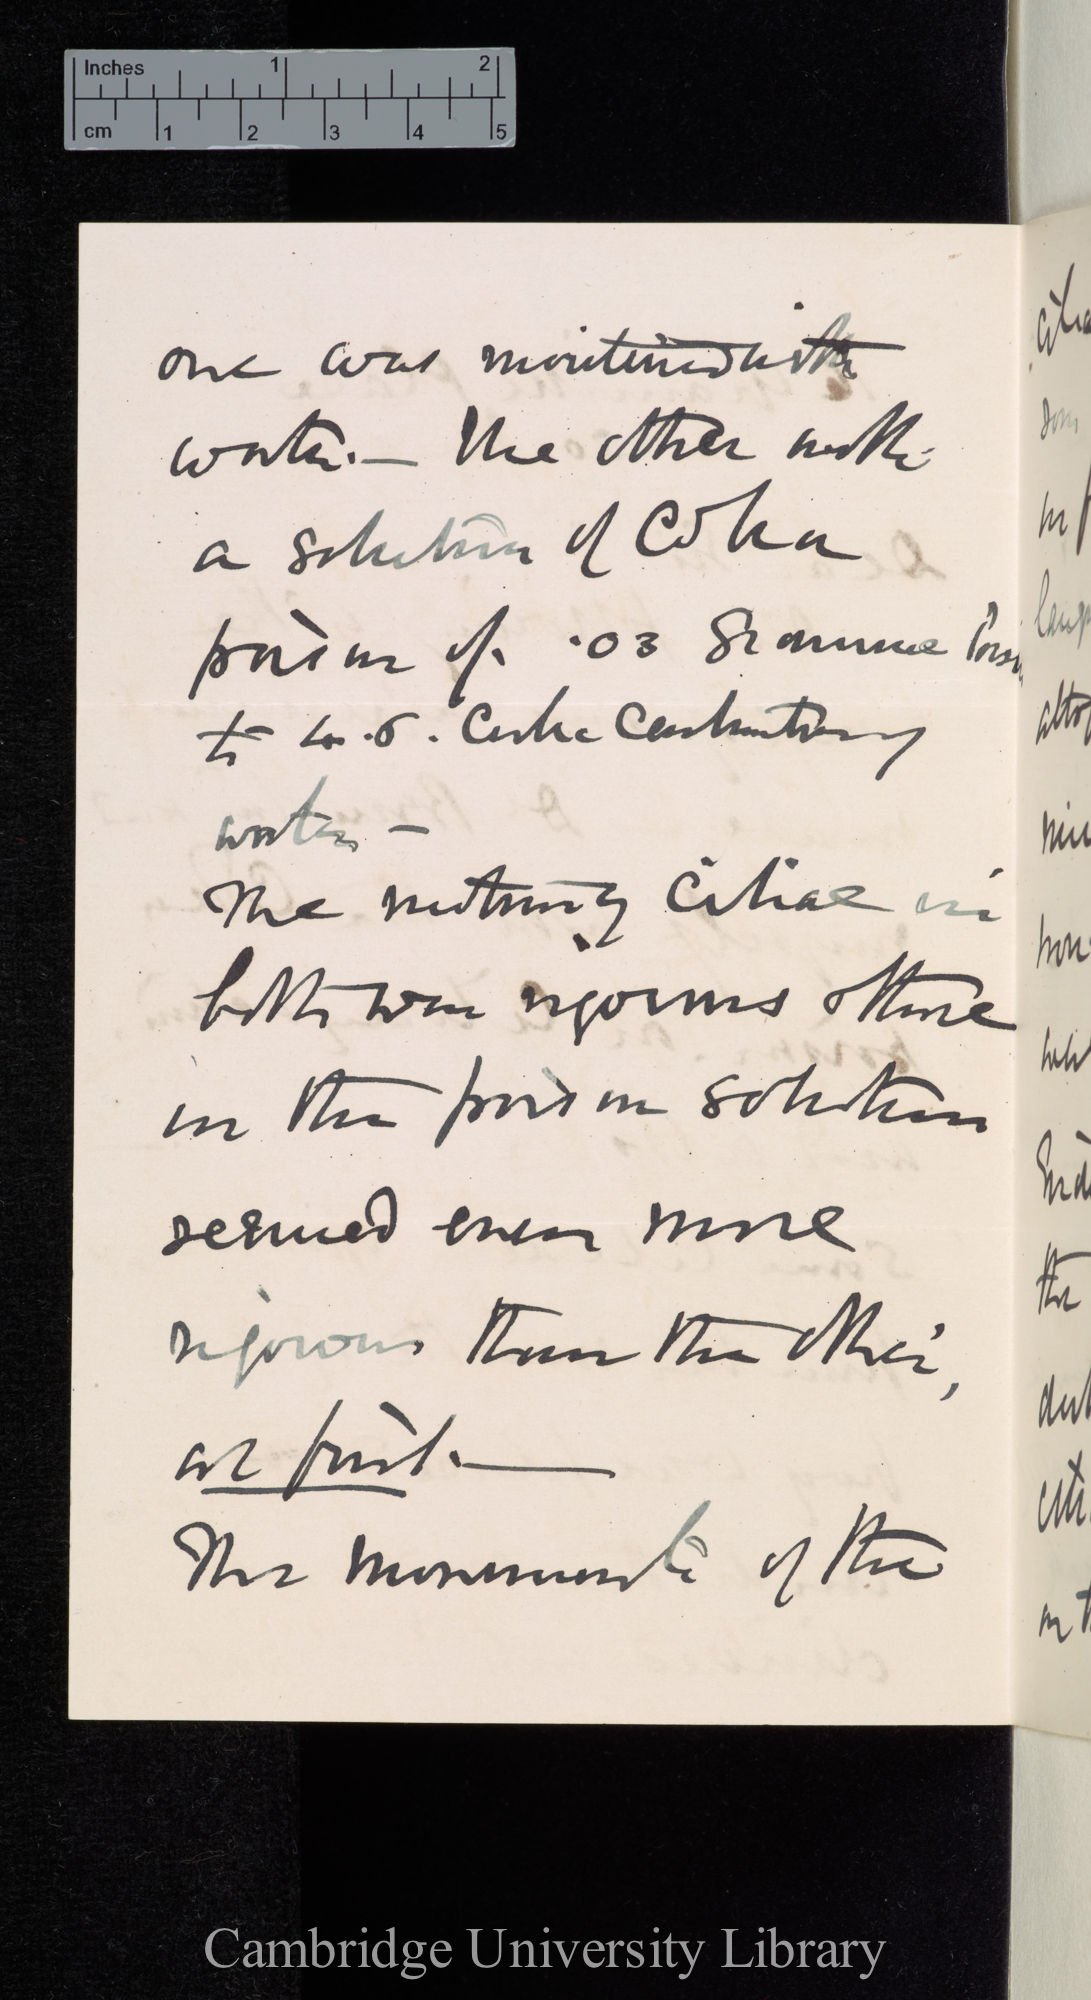 Inches 1 2
cm 1 2 3 4 5
one was moistened with
water.— The other with
a solution of Cobra
poison of .03 Gramme Pois
to 4.5. Cubic Centimetres
water —
The motion of Ciliae in
both was vigorous & those
in the poison solution
seemed even more
vigorous than the other,
at first.—
The movements of the
Cambridge University Library